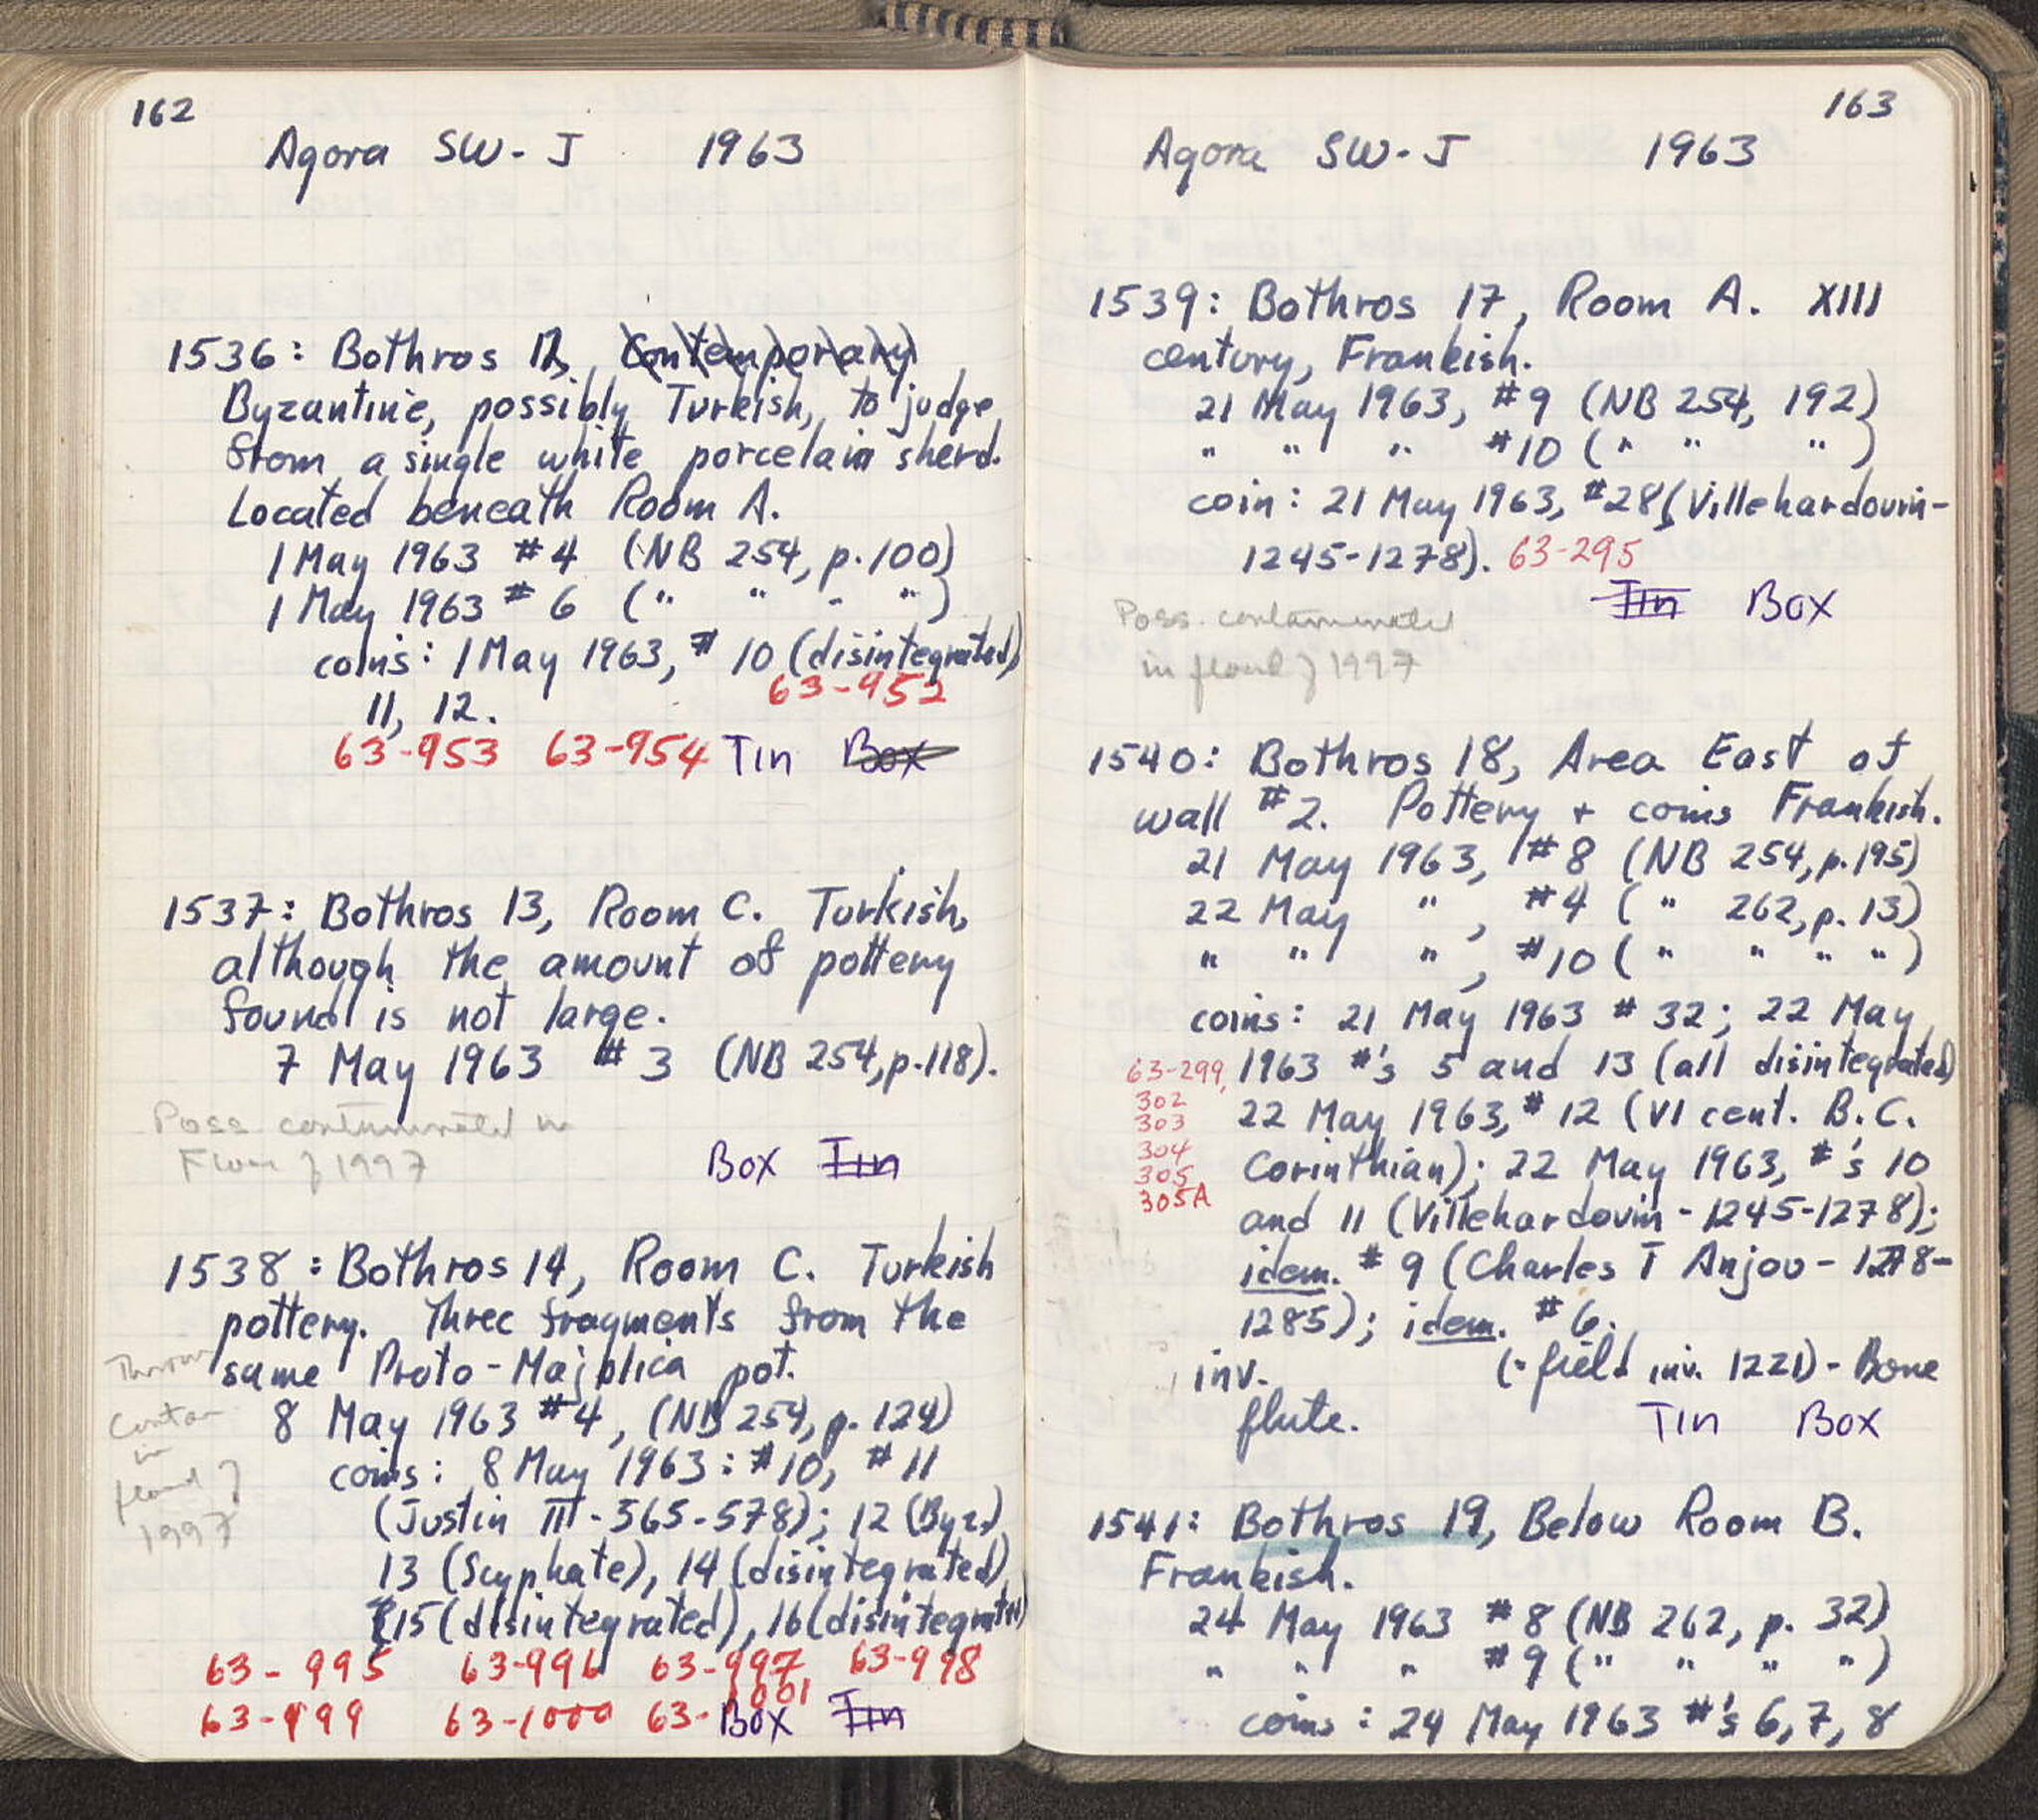 162
Agora SW-J 1963
1536: Bothros 12, Contemporary
Byzantine, possibly Turkish, to judge
from a single white porcelain sherd.
Located beneath Room A.
1 May 1963 #4 (NB 254, p.100)
1 May 1963 #6 (" " " ")
coins: 1 May 1963, # 10 (disintegrated)
63-952
11, 12.
63-953 63-954 Tin Box
1537: Bothros 13, Room C. Turkish,
although the amount of pottery
found is not large.
7 May 1963 #3 (NB 254, p.118).
Poss contaminated in
Flood of 1997
Box Tin
1538: Bothros 14, Room C. Turkish
pottery. Three fragments from the
same Proto-Majolica pot.
8 May 1963 #4, (NB 254, p. 124)
coins: 8 May 1963: #10, #11
(Justin II - 565-578); 12 (Byz.)
13 (Scyphate), 14 (disintegrated)
15 (disintegrated), 16 (disintegrated)
Contam
in
flood of
1997
63-995 63-996 63-997 63-998
63-999 63-1000 63-1001 Box Tin
163
Agora SW-J 1963
1539: Bothros 17, Room A. XIII
century, Frankish.
21 May 1963, #9 (NB 254, 192)
" " " #10 (" " ")
coin: 21 May 1963, #28 (Villehardouin-
1245-1278). 63-295
Tin Box
Poss. contaminated
in flood of 1997
1540: Bothros 18, Area East of
wall #2. Pottery + coins Frankish.
21 May 1963, #8 (NB 254, p.195)
22 May ", #4 (" 262, p. 13)
" " ", #10 (" " " ")
coins: 21 May 1963 # 32; 22 May
1963 #'s 5 and 13 (all disintegrated)
22 May 1963, # 12 (VI cent. B.C.
Corinthian); 22 May 1963, #'s 10
and 11 (Villehardouin - 1245-1278);
idem. # 9 (Charles I Anjou - 1278-
1285); idem. # 6.
63-299,
302
303
304
305
305A
inv. (field inv. 1221) - Bone
flute.
Tin Box
1541: Bothros 19, Below Room B.
Frankish.
24 May 1963 #8 (NB 262, p. 32)
" " " #9 (" " " ")
coins: 24 May 1963 #'s 6, 7, 8